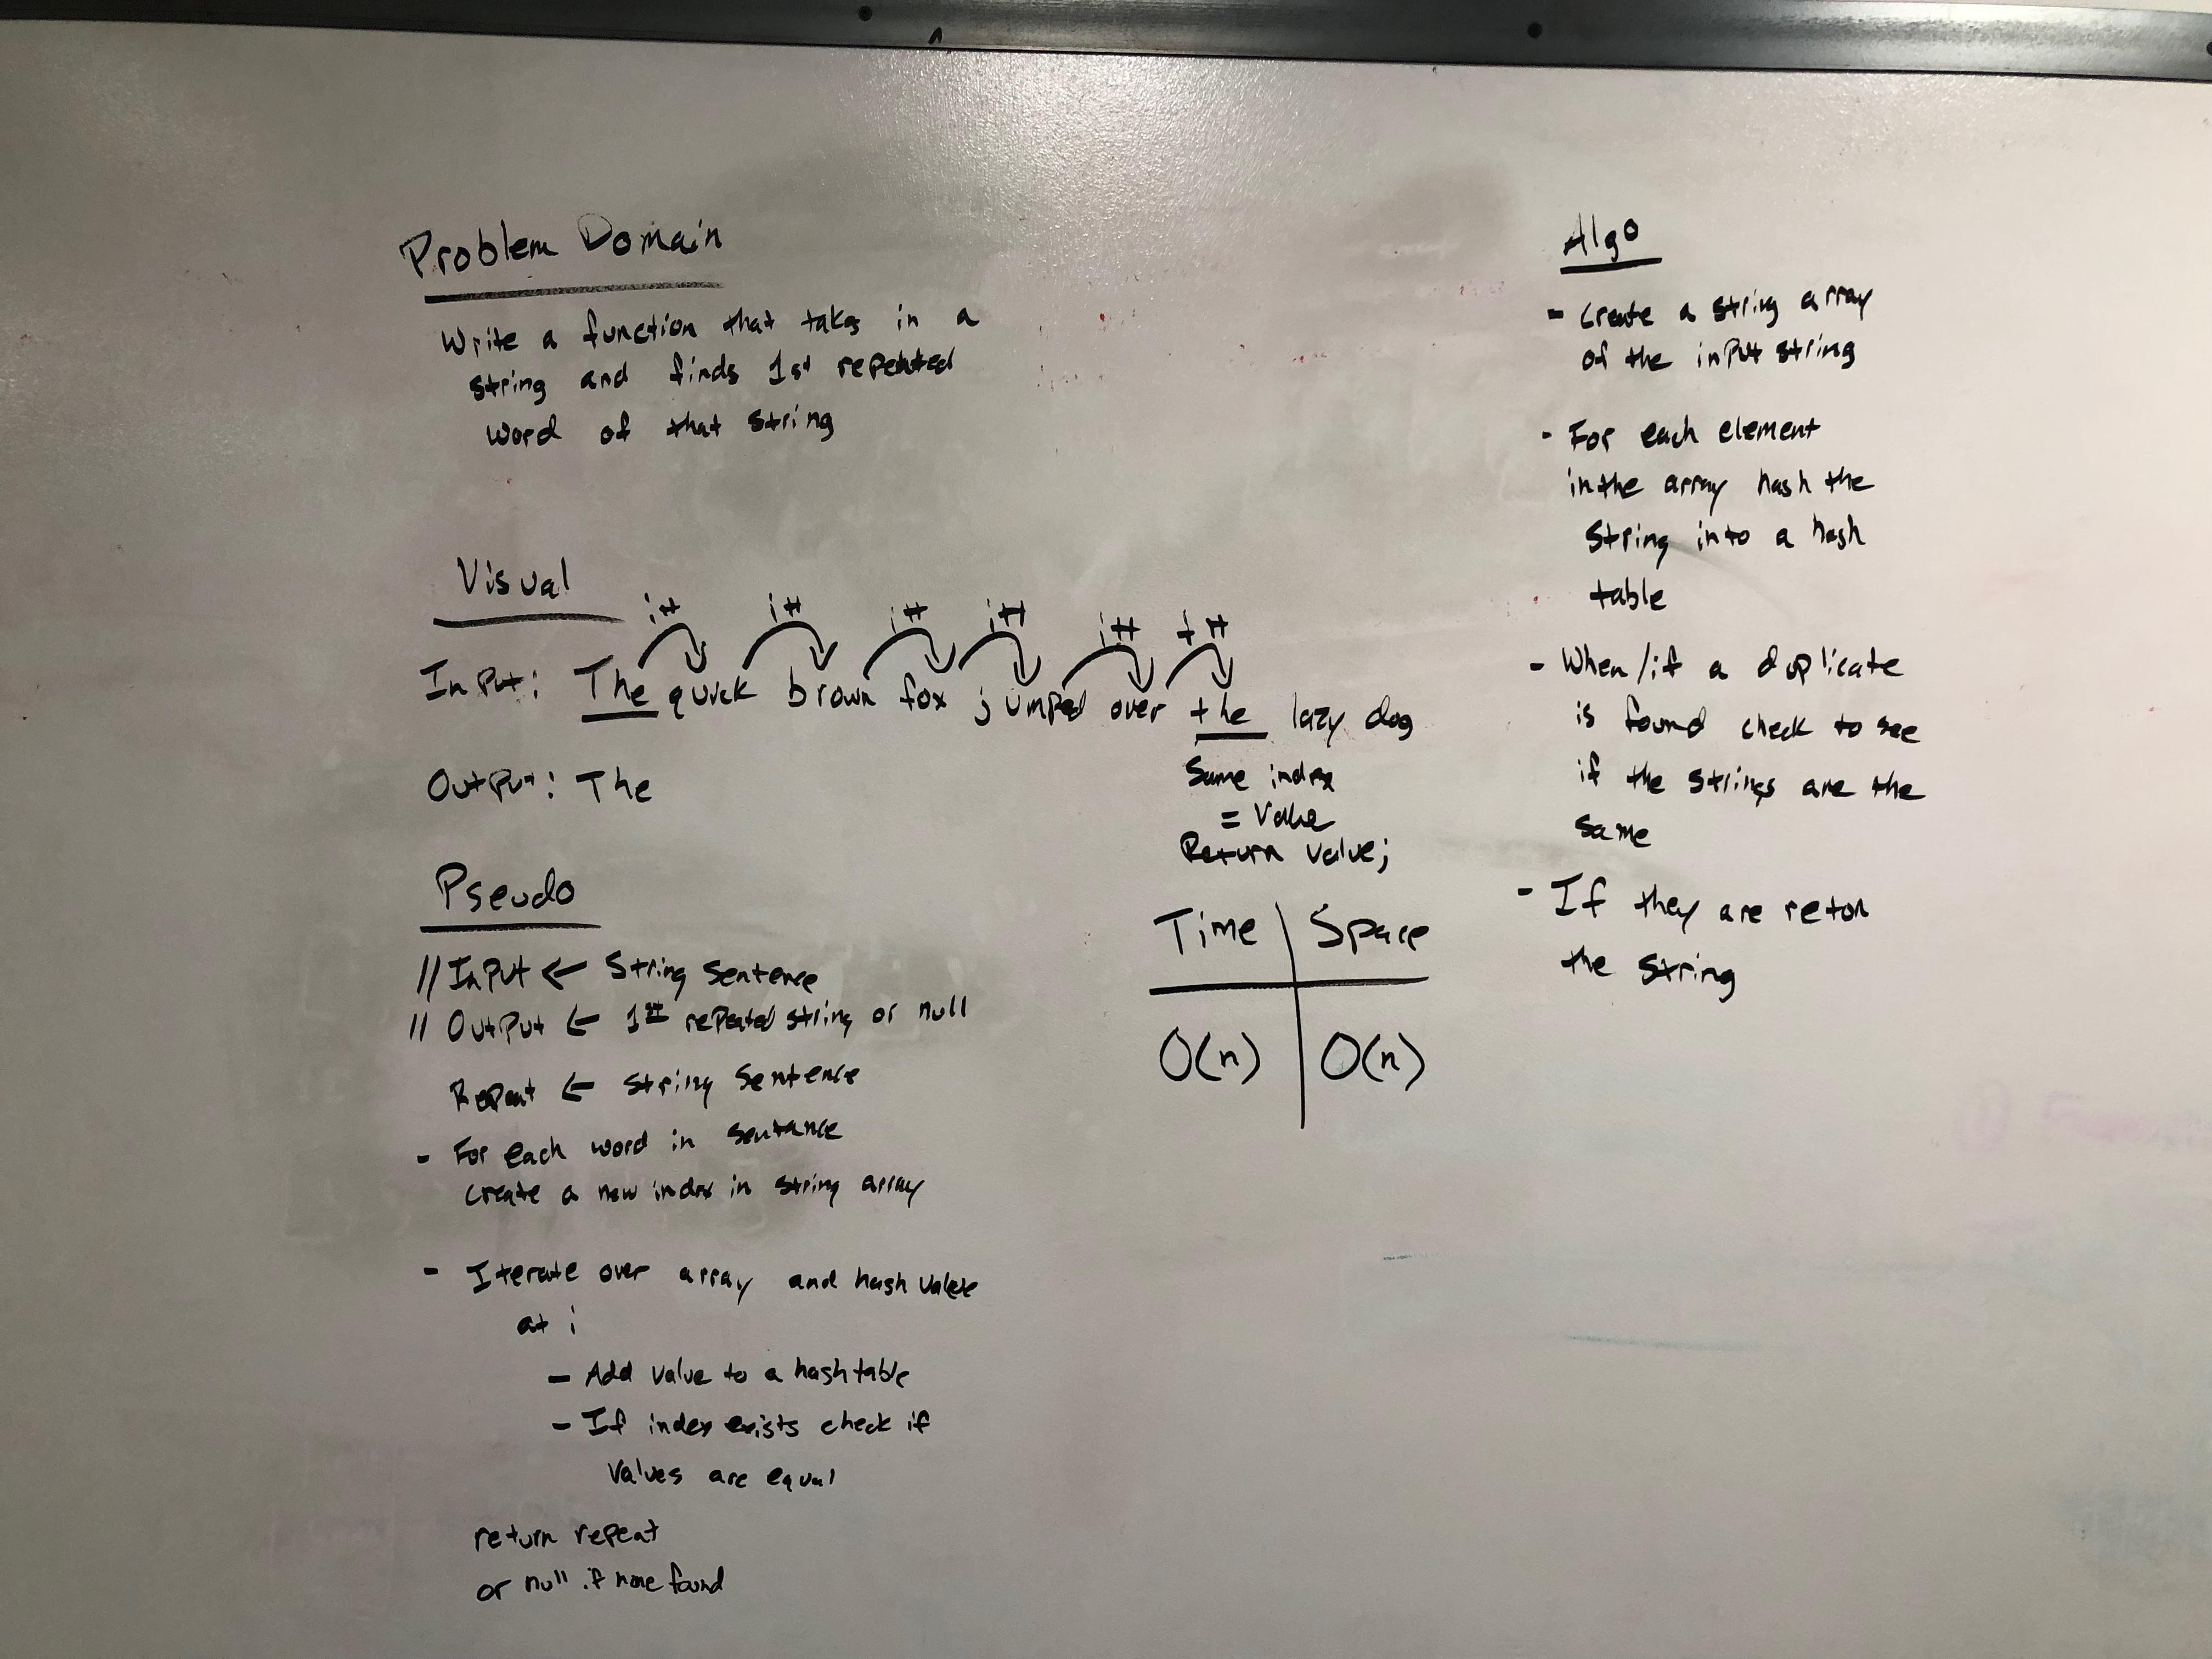 Problem Domain
Write a function that takes in a
string and finds 1st repeated
word of that string
Visual
i++ i++ i++ i++ i++ i++
Input: The quick brown fox jumped over the lazy dog
Same index
= Value
Return value;
Output: The
Pseudo
// Input ← String Sentence
// Output ← 1st repeated string or null
Repeat ← String Sentence
- For each word in sentance
create a new index in string array
- Iterate over array and hash value
at i
- Add value to a hashtable
- If index exists check if
values are equal
return repeat
or null if none found
Time | Space
O(n) | O(n)
Algo
- Create a string array
of the input string
- For each element
in the array hash the
String into a hash
table
- When/if a duplicate
is found check to see
if the strings are the
same
- If they are return
the string